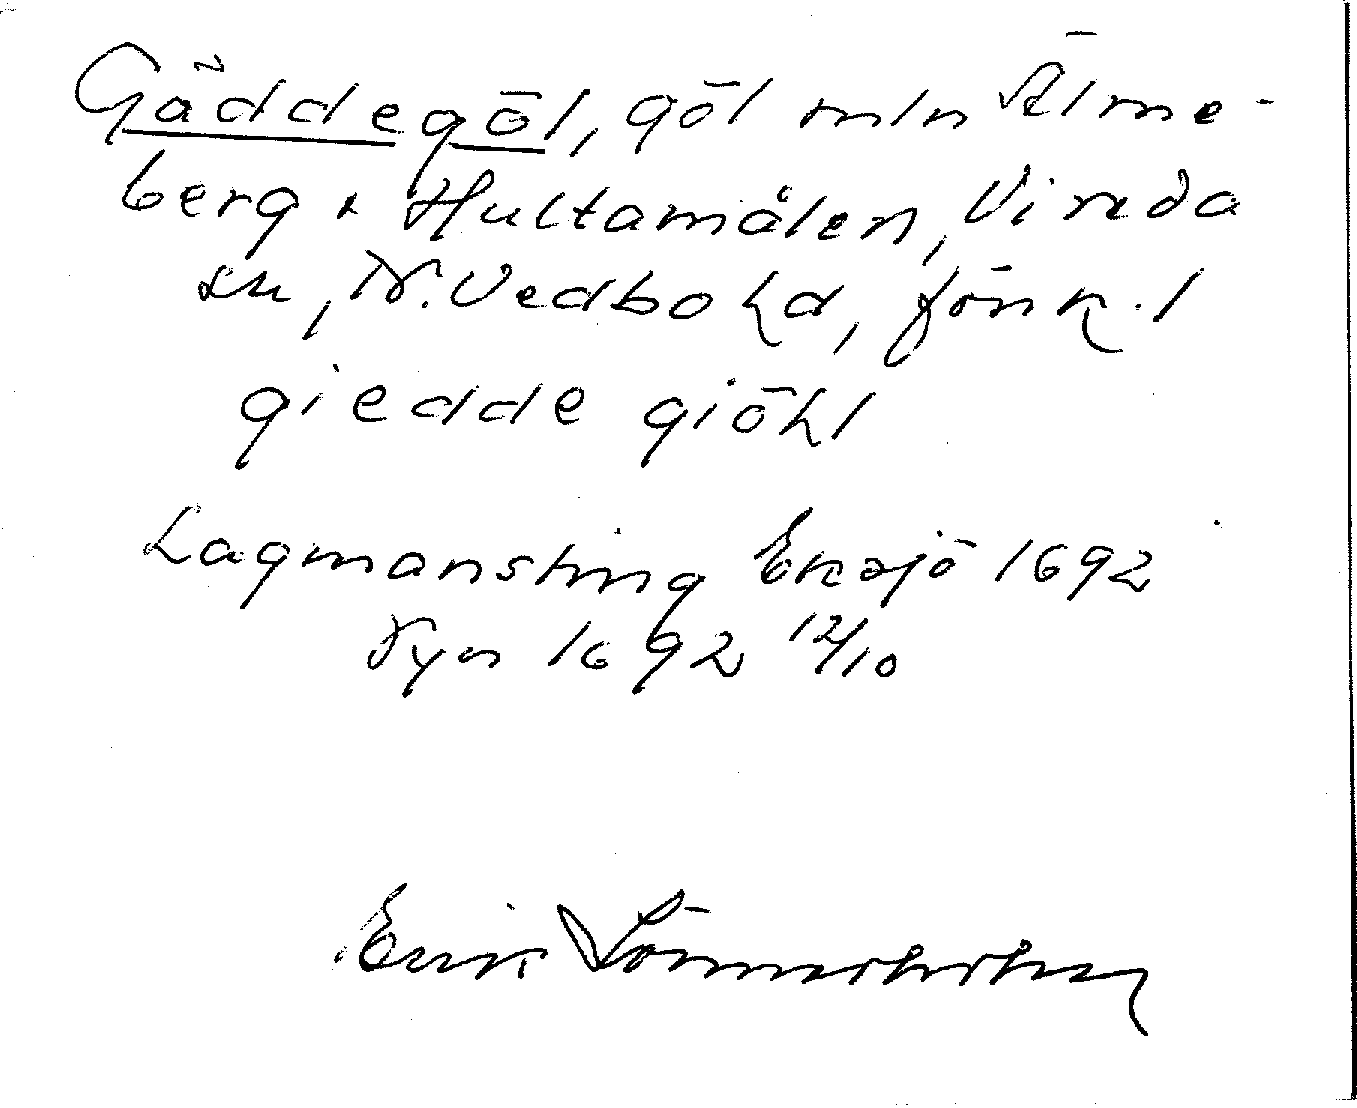 Gäddegöl, göl mln Älme-
berg & Hultamålen, Vireda
sn, N. Vedbo hd, Jönk. l
giedde giöhl
Lagmansting Eksjö 1692
Syn 1692 12/10
Erik